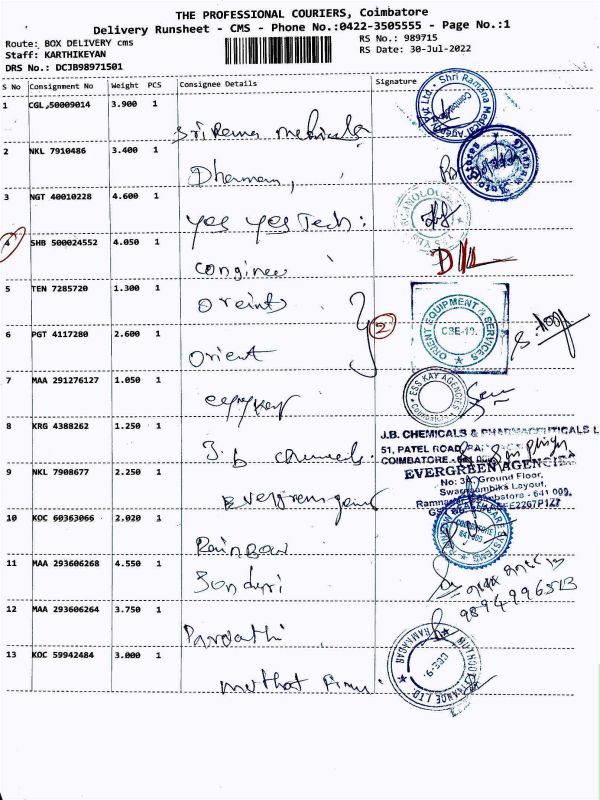 THE PROFESSIONAL COURIERS, Coimbatore
Delivery Runsheet - CMS - Phone No.:0422-3505555 - Page No.:1
Route: BOX DELIVERY cms
RS No.: 989715
Staff: KARTHIKEYAN
RS Date: 30-Jul-2022
DRS No.: DCJB98971501
S No Consignment No Weight PCS Consignee Details Signature
1 CGL 50009014 3.900 1
Sri Rama medicals
Shri Ramana Medical Agency Pvt Ltd. Coimbatore
2 NKL 7910486 3.400 1
Dhanam
Dhanam Auto Stores
3 NGT 40010228 4.600 1
yes yes Tech:
4 SHB 500024552 4.050 1
5 TEN 7285720 1.300 1
2
ORIENT EQUIPMENT & SERVICES
6 PGT 4117280 2.600 1
Orient
7 MAA 291276127 1.050 1
ESS KAY AGENCIES
Coimbatore
8 KRG 4388262 1.250 1
J.b chemicals
J.B. CHEMICALS & PHARMACEUTICALS L
51, PATEL ROAD,
COIMBATORE - 641 009
9 NKL 7908677 2.250 1
EVERGREEN AGENCIES
No: 3A, Ground Floor,
Swarnambika Layout,
Coimbatore - 641 009.
10 KOC 60363066 2.020 1
Rainbow
11 MAA 293606268 4.550 1
9894996513
12 MAA 293606264 3.750 1
Parvathi
13 KOC 59942484 3.000 1
muthot Finan
RAMNAGAR